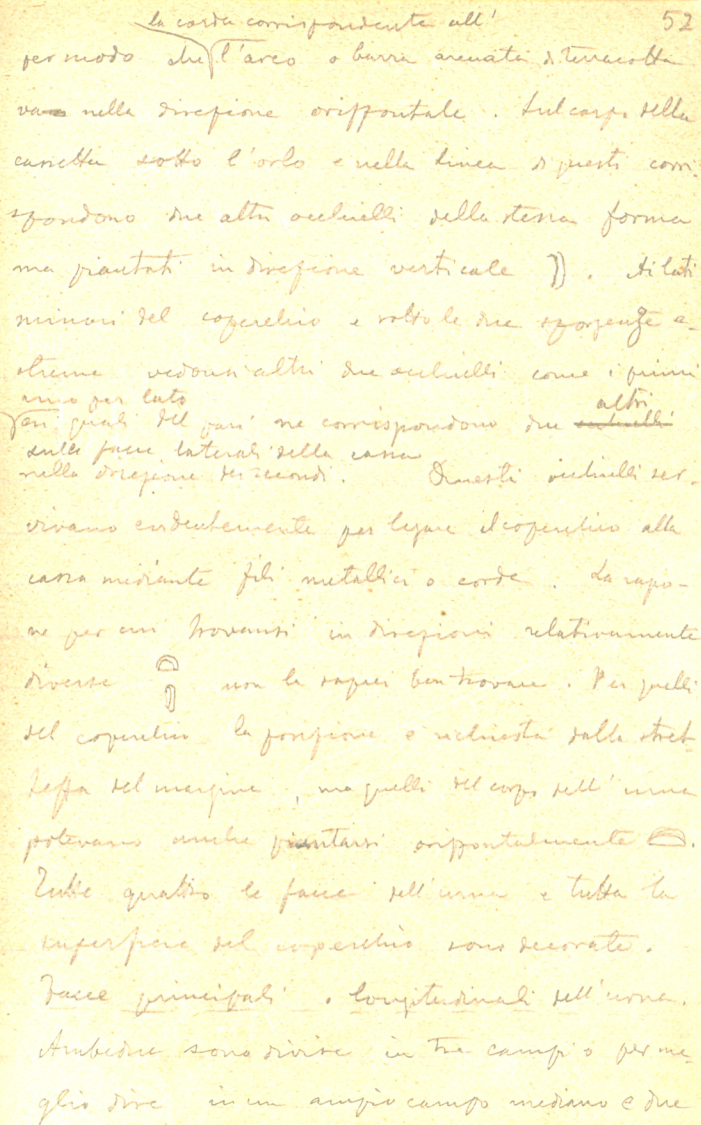 52
la corda corrispondente all'
per modo che l'arco o barra arcuata di terracotta
va nella direzione orizzontale. Sul corpo della
cassetta sotto l'orlo e nella linea di questi corri-
spondono due altri occhielli della stessa forma
ma piantati in direzione verticale. Ai lati
minori del coperchio e sotto le due sporgenze e-
streme vedonsi altri due occhielli come i primi
uno per lato
ai quali del pari ne corrispondono due occhielli altri
sulle facce laterali della cassa
nella direzione dei secondi. Questi occhielli ser-
vivano evidentemente per legare il coperchio alla
cassa mediante fili metallici o corde. La ragio-
ne per cui trovansi in direzioni relativamente
diverse non la saprei ben trovare. Per quelli
del coperchio la posizione è richiesta dalla stret-
tezza del margine, ma quelli del corpo dell'urna
potevano anche piantarsi orizzontalmente.
Tutte quattro le facce dell'urna e tutta la
superficie del coperchio sono decorate.
Facce principali o longitudinali dell'urna.
Ambedue sono divise in tre campi o per me-
glio dire in un ampio campo mediano e due